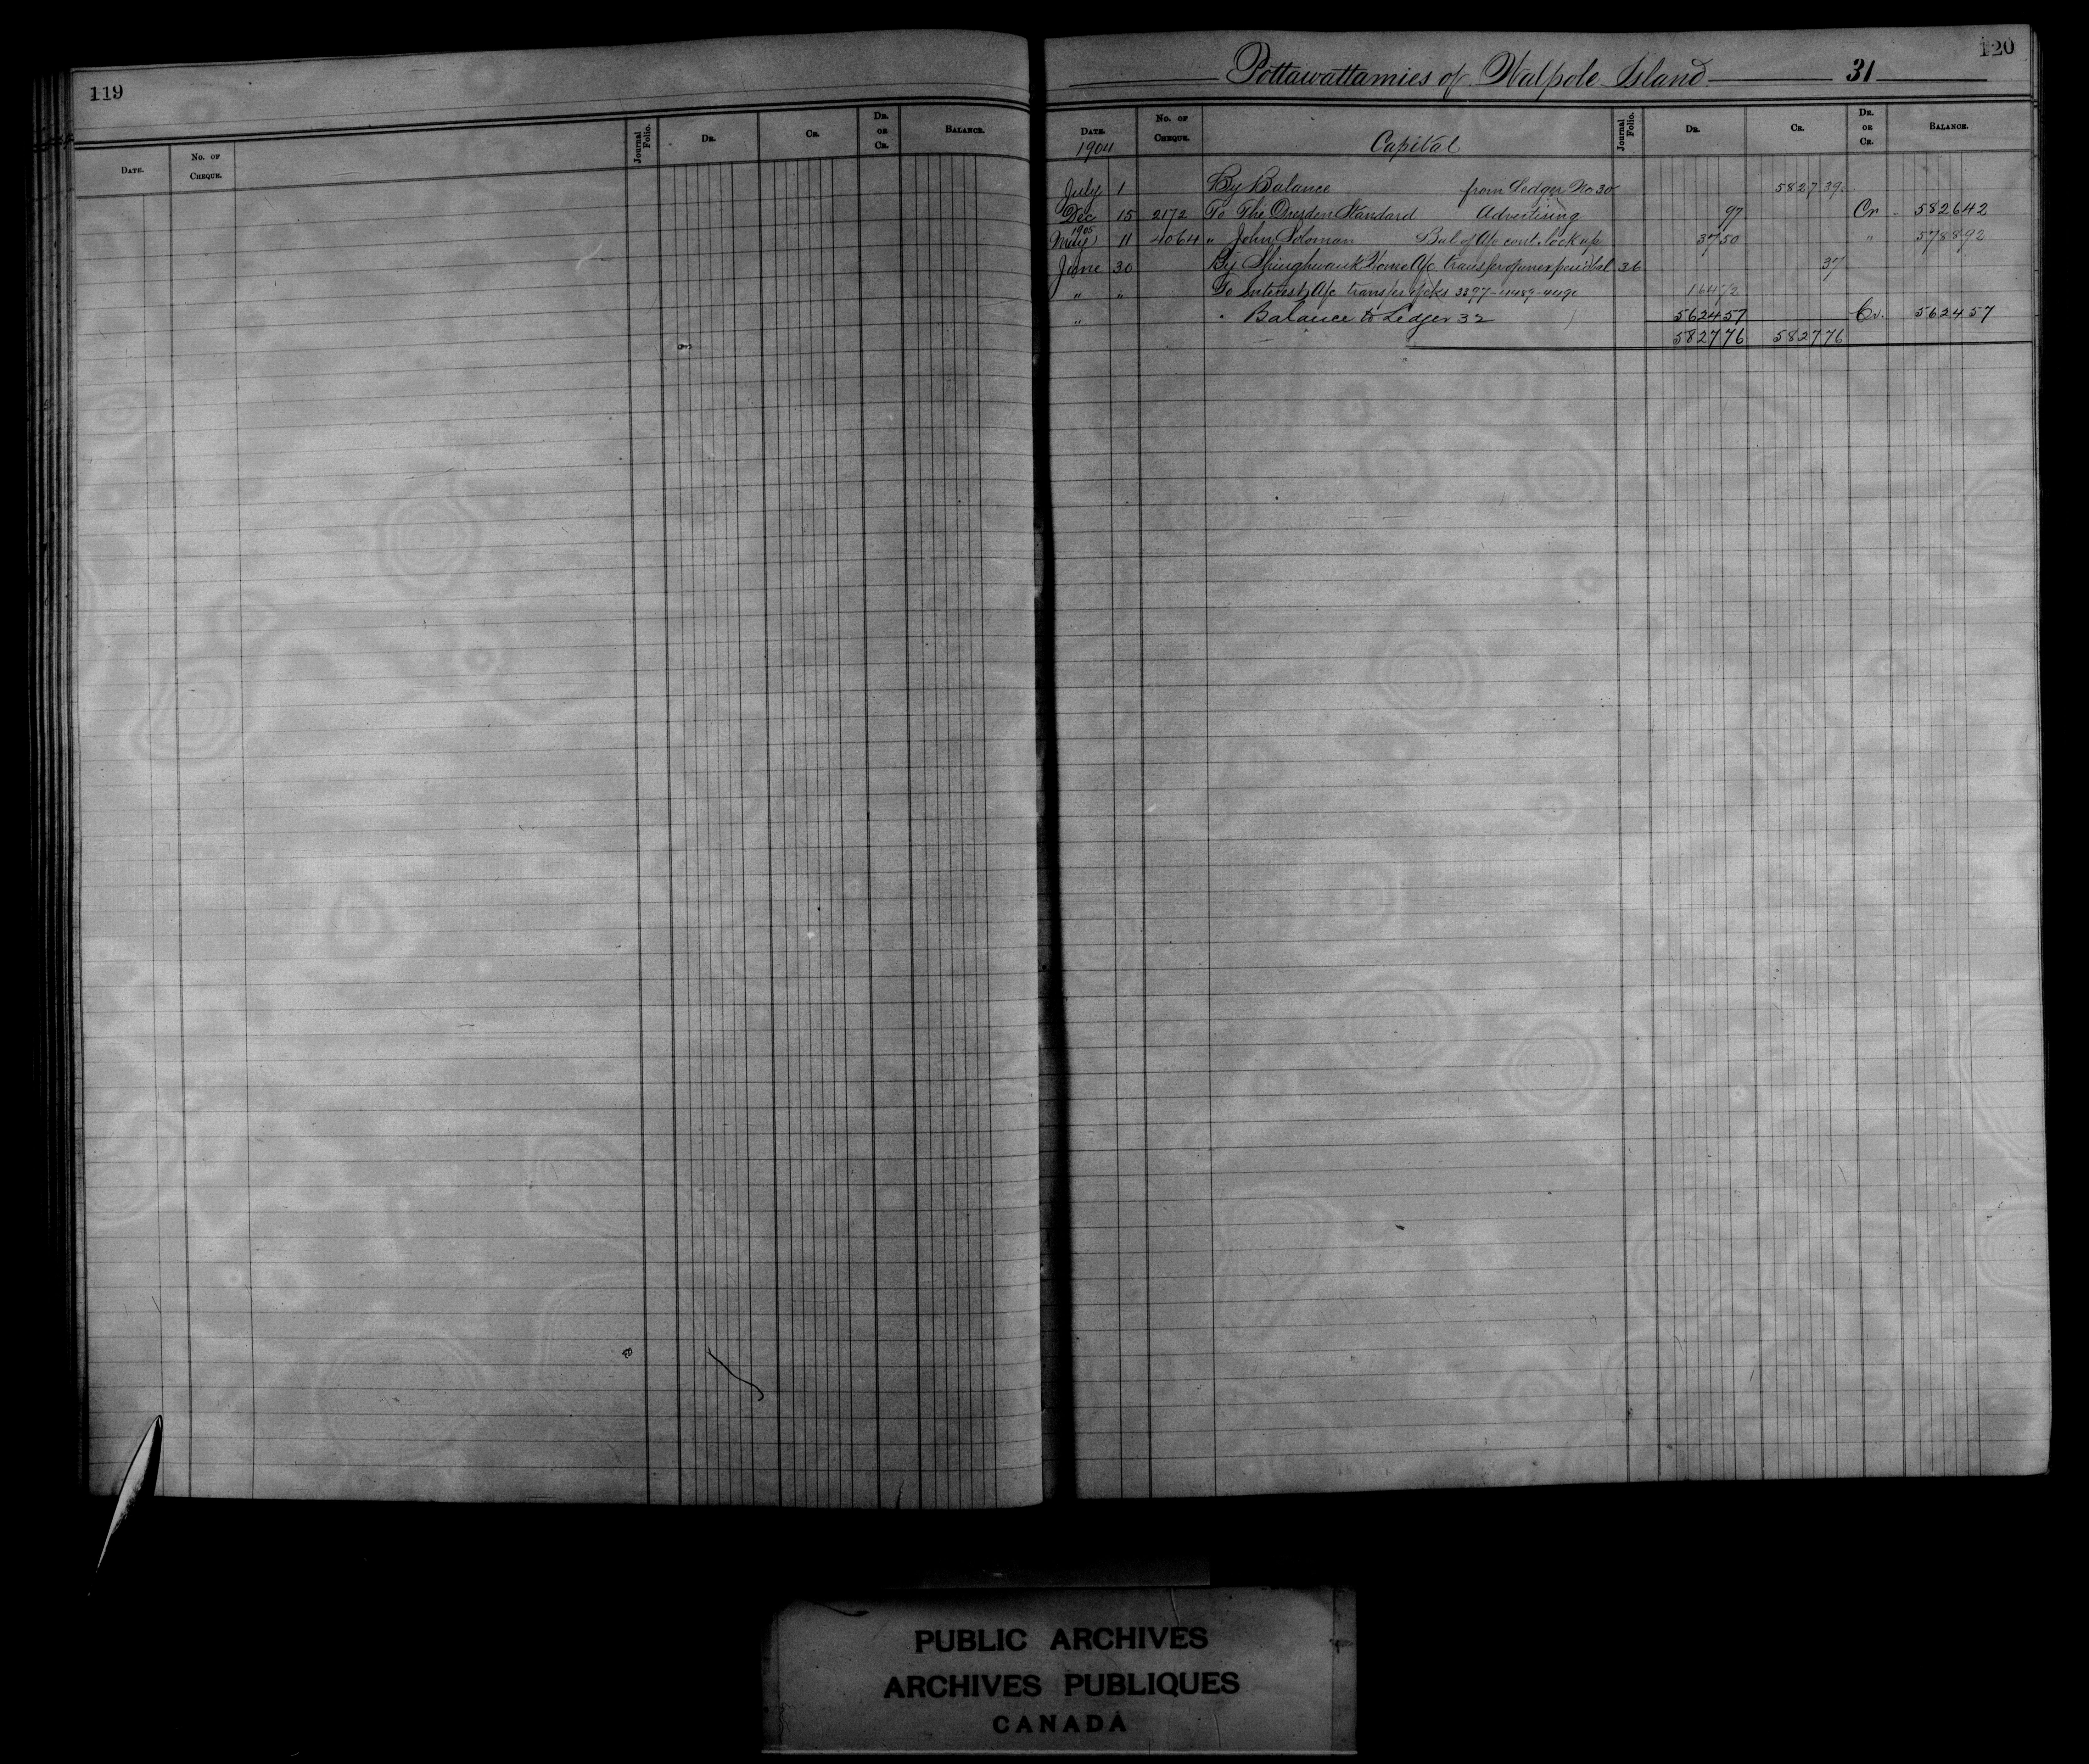 119
Date. No. of Cheque. Journal Folio. Dr. Cr. Dr. or Cr. Balance.
120
Pottawattamies of Walpole Island 31
Date. No. of Cheque. Journal Folio. Dr. Cr. Dr. or Cr. Balance.
1904 Capital
July 1 By Balance from Ledger No 30 5827 39
Dec 15 2172 To The Dresden Standard Advertising 97 Cr 5826 42
1905
May 11 4064 " John Soloman Bal of A/c const. lock up 37 50 " 5788 92
June 30 By Shinghwauk Home A/c transfer of unexpended bal 36 37
" " To Interest A/c transfer of cks 3397-4489-4490 164 72
" " Balance to Ledger 32 5624 57 Cr. 5624 57
5827 76 5827 76
PUBLIC ARCHIVES
ARCHIVES PUBLIQUES
CANADA